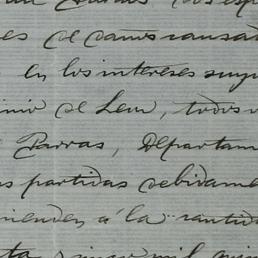 es de daños causad
en los intereses suyo
inio de Leon, todos v
Parras, Departam
as partidas debidame
ienden á la cantid